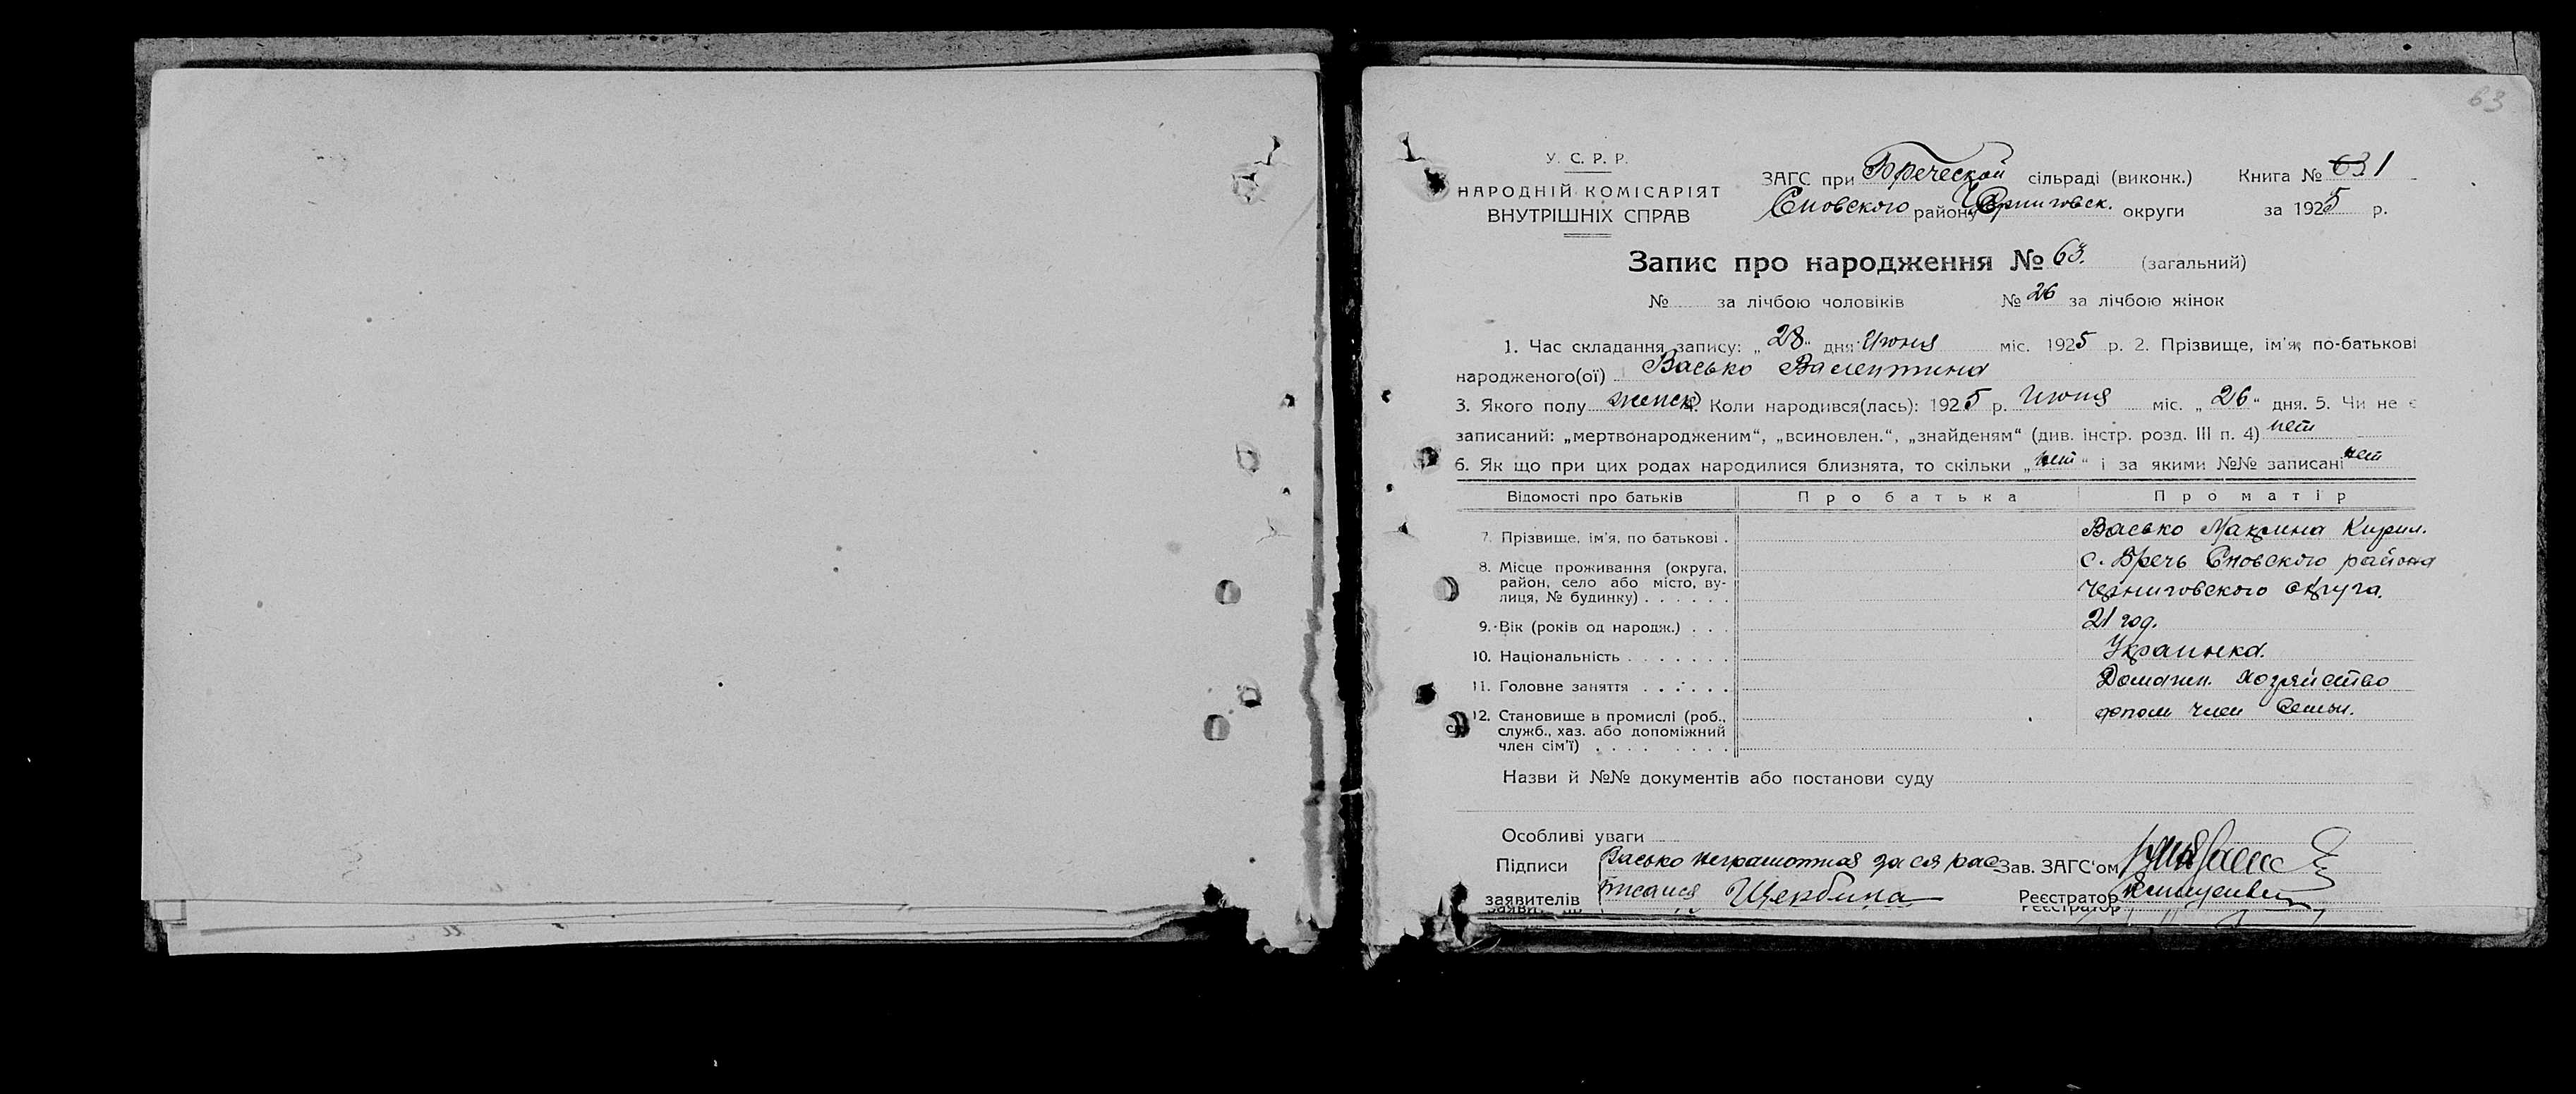 63
У. С. Р. Р.
НАРОДНІЙ КОМІСАРІЯТ
ВНУТРІШНІХ СПРАВ
ЗАГС при Бреческой сільраді (виконк.) Книга № 63 1
Сновского району Черниговск. округи за 1925 р.
Запис про народження № 63. (загальний)
№ за лічбою чоловіків № 26 за лічбою жінок
1. Час складання запису: „28“ дня Июня міс. 1925 р. 2. Прізвище, ім'я, по-батькові
народженого(ої) Васько Валентина
3. Якого полу женск 4. Коли народився(лась): 1925 р. Июня міс. „26“ дня. 5. Чи не є
записаний: „мертвонародженим“, „всиновлен.“, „знайденям“ (див. інстр. розд. III п. 4) нет
6. Як що при цих родах народилися близнята, то скільки „нет“ і за якими №№ записані нет
Відомості про батьків Про батька Про матір
7. Прізвище, ім'я, по батькові . Васько Макрина Кирил.
8. Місце проживання (округа, с. Бречь Сновского района
район, село або місто, ву-
лиця, № будинку) . . . . . . Черниговского округа.
9. Вік (років од народж.) . . . 21 год.
10. Національність . . . . . . . Украинка.
11. Головне заняття . . . . . . Домашн. хозяйство
12. Становище в промислі (роб., допом член семьи.
служб., хаз. або допоміжний
член сім'ї) . . . . . . . .
Назви й №№ документів або постанови суду
Особливі уваги
Підписи Васько неграмотная за ся рас Зав. ЗАГС'ом
заявителів Щербина Реєстратор
Реєстратор